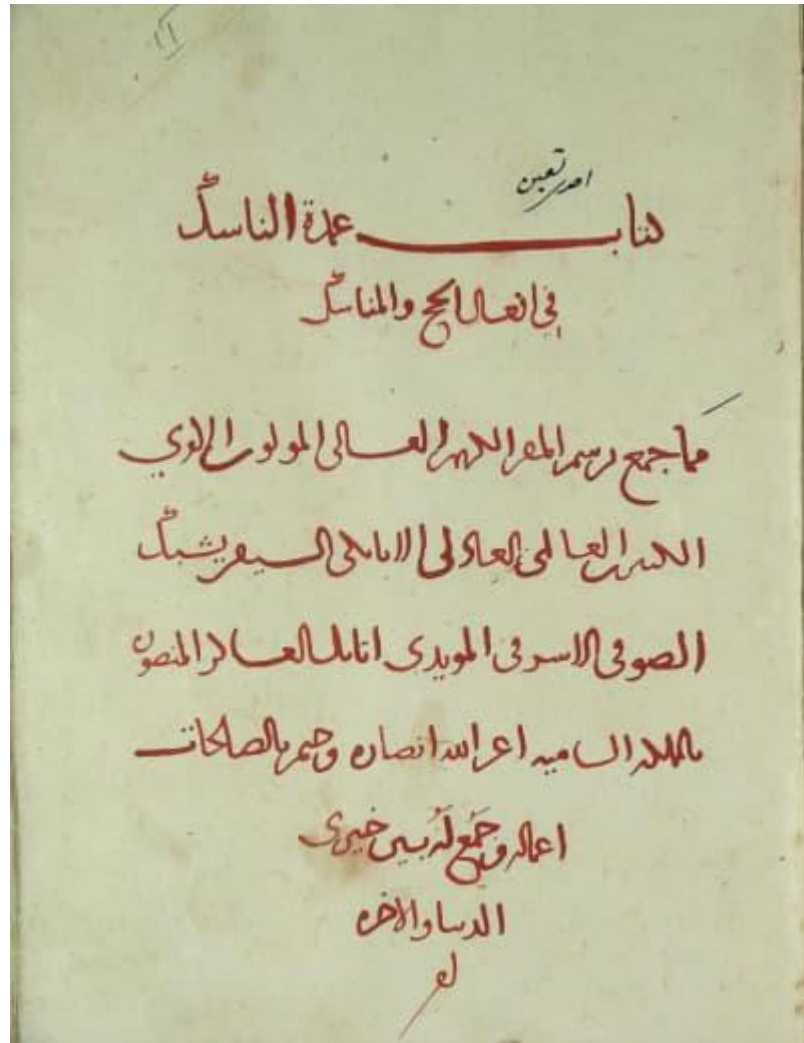 كتاب عمدة الناسك
في افعال الحج والمناسك
مما جمع برسم المقر الكريم العالي المولوي
الكبيري العالمي العادلي الاتابكي السيفي يشبك
الصوفي الاشرفي المويدي اتابك العساكر المنصوره
بالمملكه الشاميه اعز الله انصاره وختم بالصالحات
اعماله وجمع له بين خيري
الدنيا والاخره